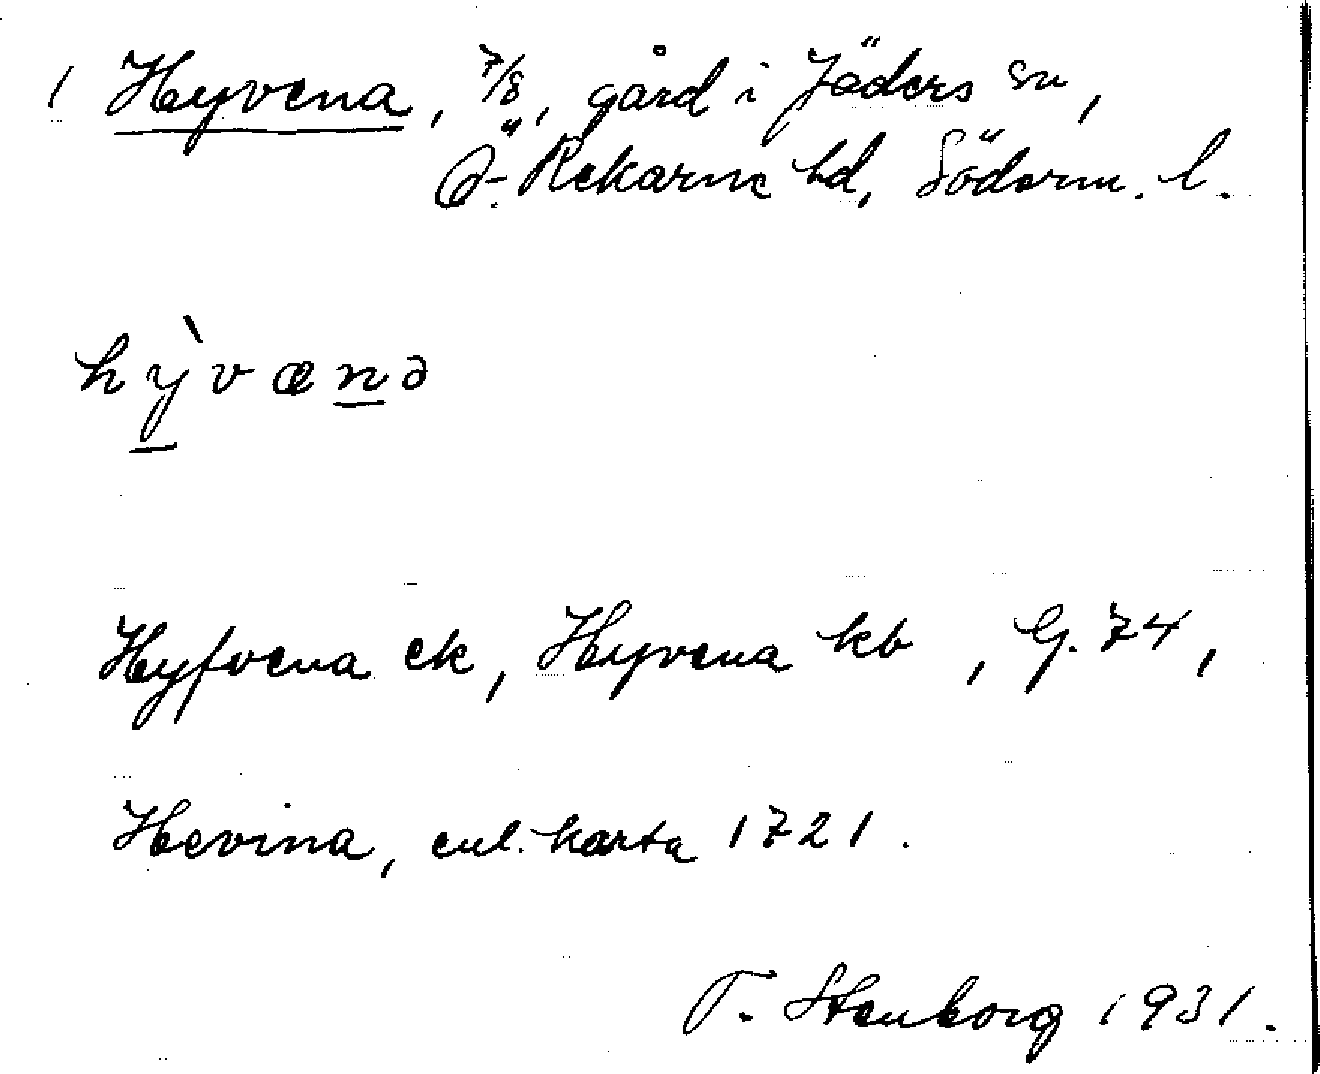 1 Hyvena, 7/8, gård i Jäders sn,
Ö. Rekarne hd, Söderm. l.
hỳ̱væṉə
Hyfvena ek, Hyvena kb, G. 74,
Hevina, enl. karta 1721.
T. Stenborg 1931.